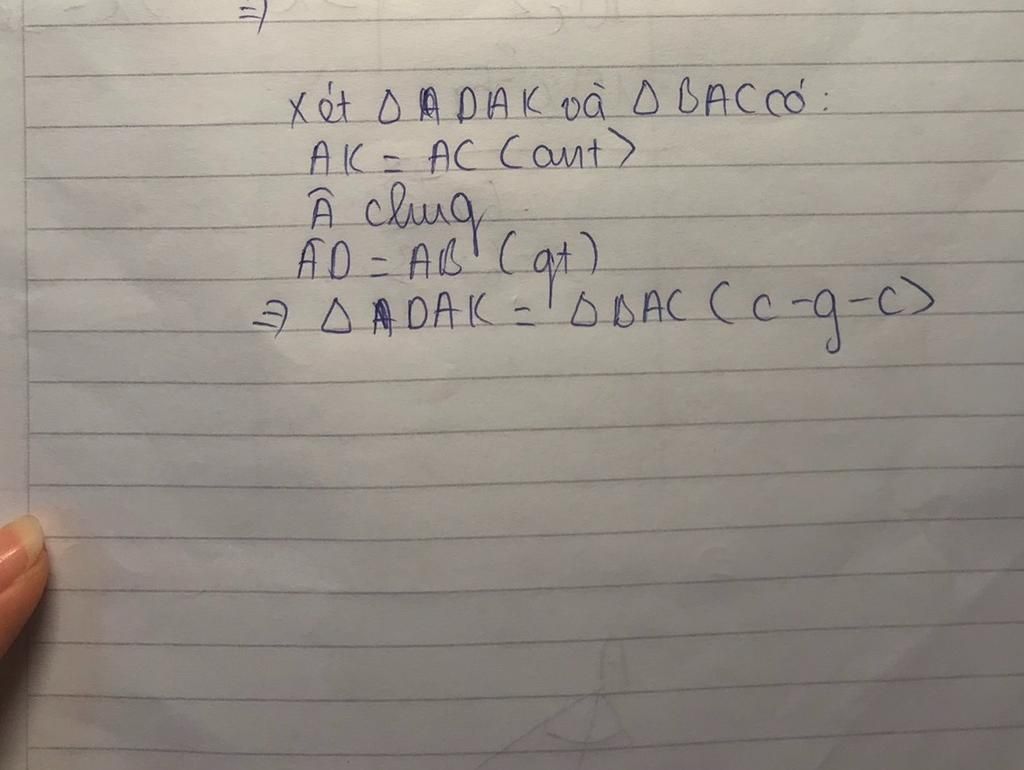 =)
Xét Δ ADAK và Δ BAC có:
AK = AC (cmt)
Â chung
AD = AB (gt)
=) Δ ADAK = Δ BAC (c-g-c)